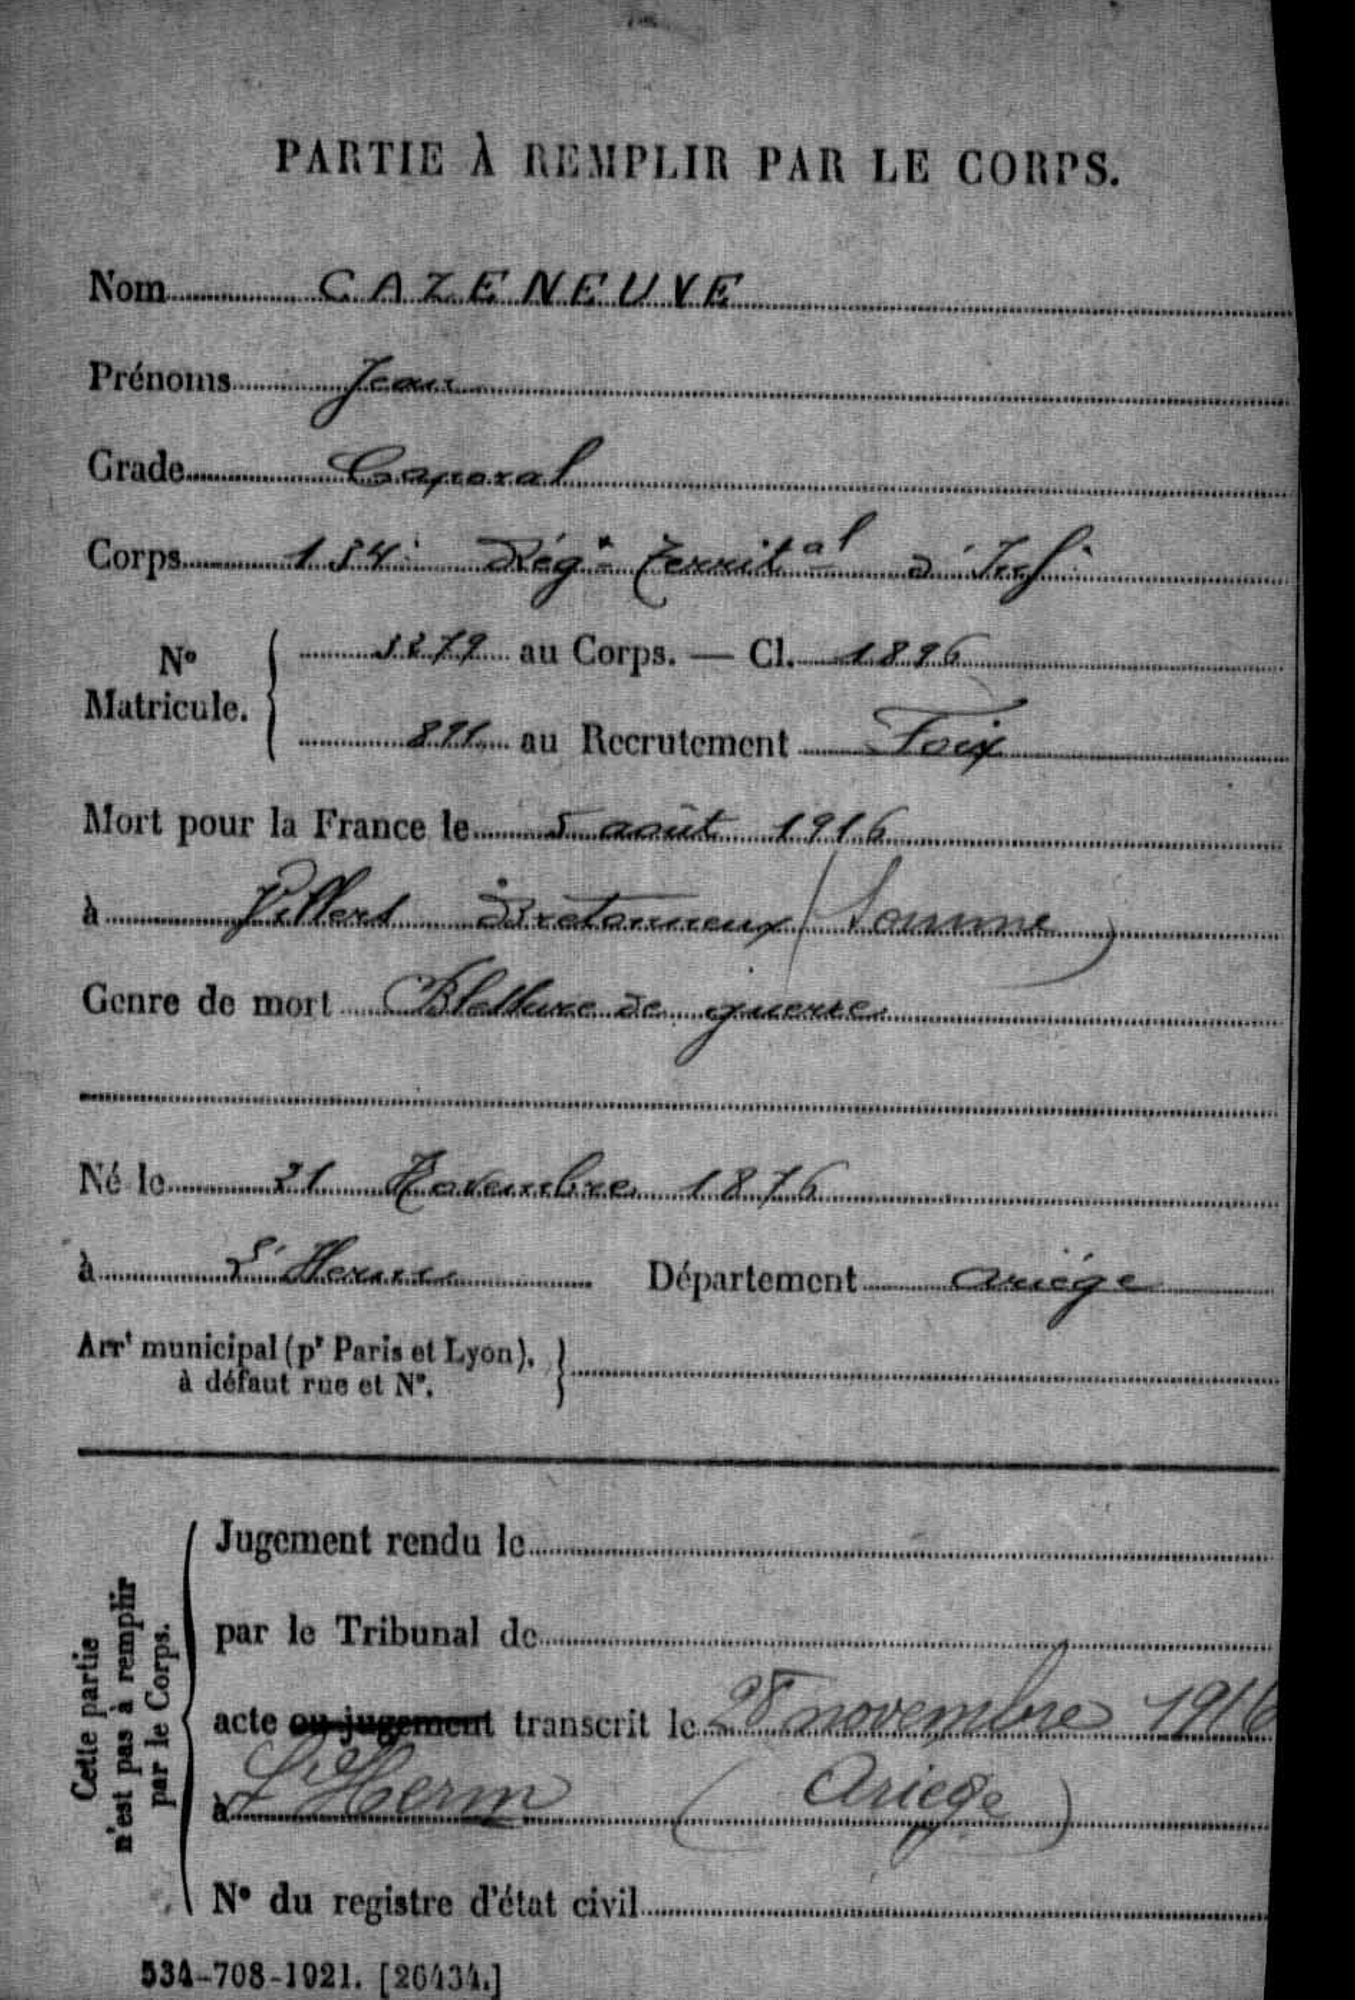 PARTIE À REMPLIR PAR LE CORPS.
Nom CAZENEUVE
Prénoms Jean
Grade Caporal
Corps 134e Régt Territal d'Infie
No Matricule. { 3279 au Corps. — Cl. 1896
891 au Recrutement Foix
Mort pour la France le 5 août 1916
à Villers Bretonneux (Somme)
Genre de mort Blessure de guerre
Né le 21 Novembre 1876
à L'Herm Département Ariège
Arrt municipal (pr Paris et Lyon), à défaut rue et No. }
Cette partie n'est pas à remplir par le Corps.
Jugement rendu le
par le Tribunal de
acte ou jugement transcrit le 28 novembre 1916
à L'Herm (Ariège)
No du registre d'état civil
534-708-1921. [26434.]